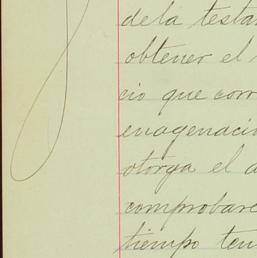 de la testa
obtener el
cio que corr
enagenació
otorga el a
comprobare
tiempo ten